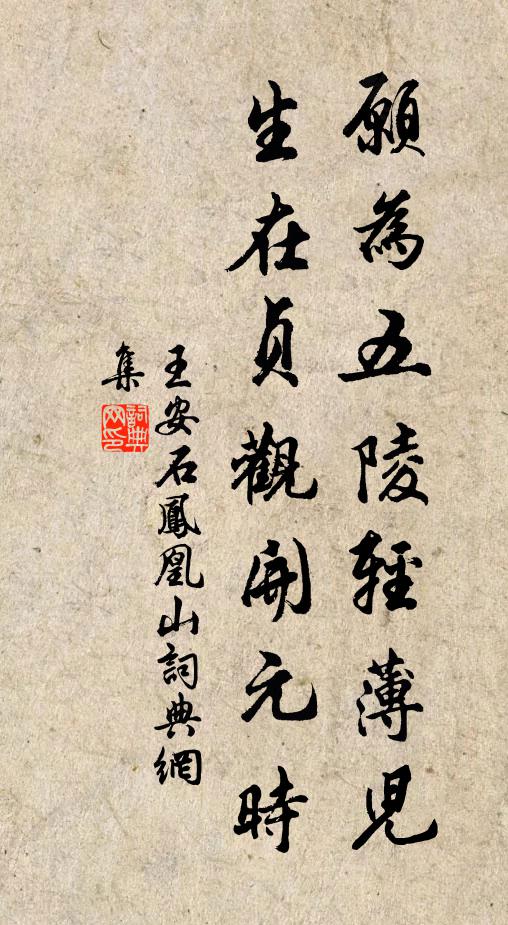 願為五陵輕薄兒
生在貞觀開元時
王安石鳳凰山詞典網
集
詞典
网印